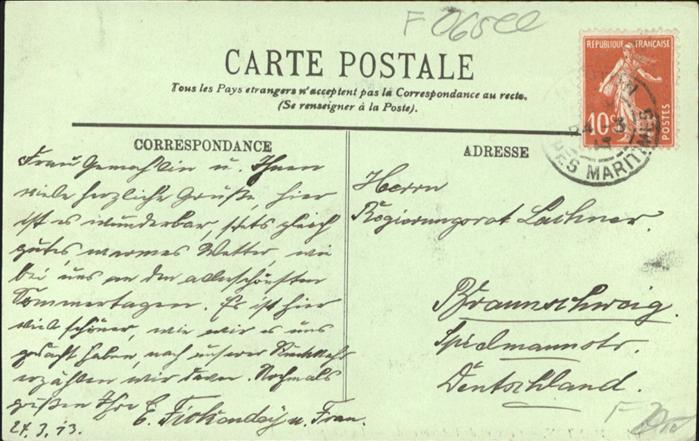 CARTE POSTALE
Tous les Pays étrangers n'acceptent pas la Correspondance au recto.
(Se renseigner à la Poste).
CORRESPONDANCE
ADRESSE
REPUBLIQUE FRANÇAISE
10c
POSTES
PES MARITIMES
Frau Gemahlin u. Ihnen
viele herzliche Grüße, hier
ist es wunderbar, stets gleich
gutes warmes Wetter, wie
bei uns an den allerschönsten
Sommertagen. Es ist hier
viel schöner, wie wir es uns
gedacht haben, nach unserer Rückkehr
erzählen wir davon. Nochmals
grüßen Ihre
E. u. Frau.
24.3.13.
Herrn
Regierungsrat Lachner.
Braunschweig.
Spielmannstr.
Deutschland.